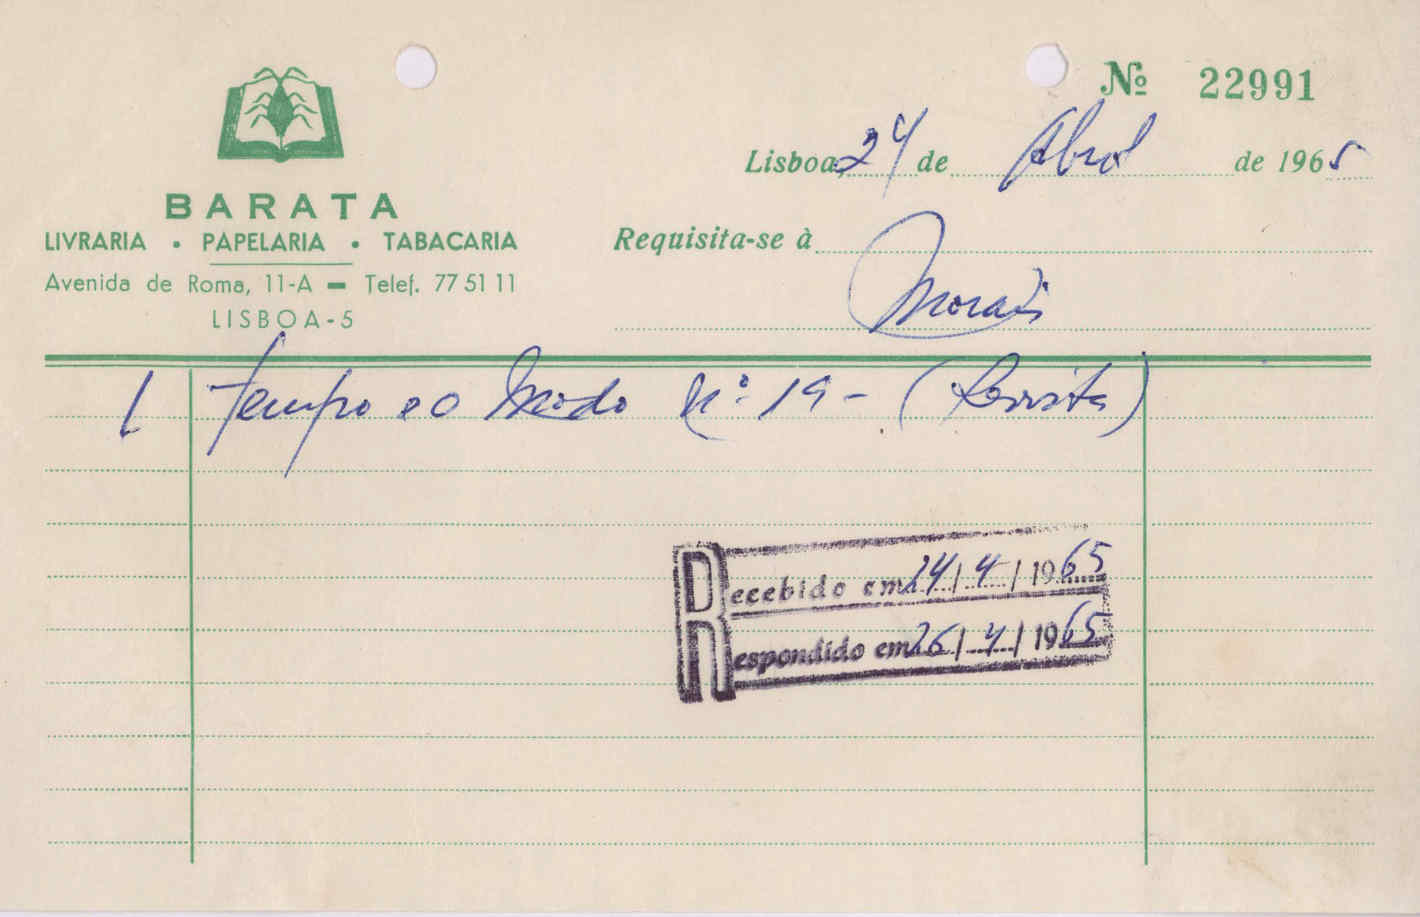 Nº 22991
Lisboa, 24 de Abril de 1965
BARATA
LIVRARIA • PAPELARIA • TABACARIA
Avenida de Roma, 11-A — Telef. 77 51 11
LISBOA-5
Requisita-se à
Morais
1 Tempo e o Modo Nº 19 - (Revista)
Recebido em 24/4/1965
Respondido em 26/4/1965